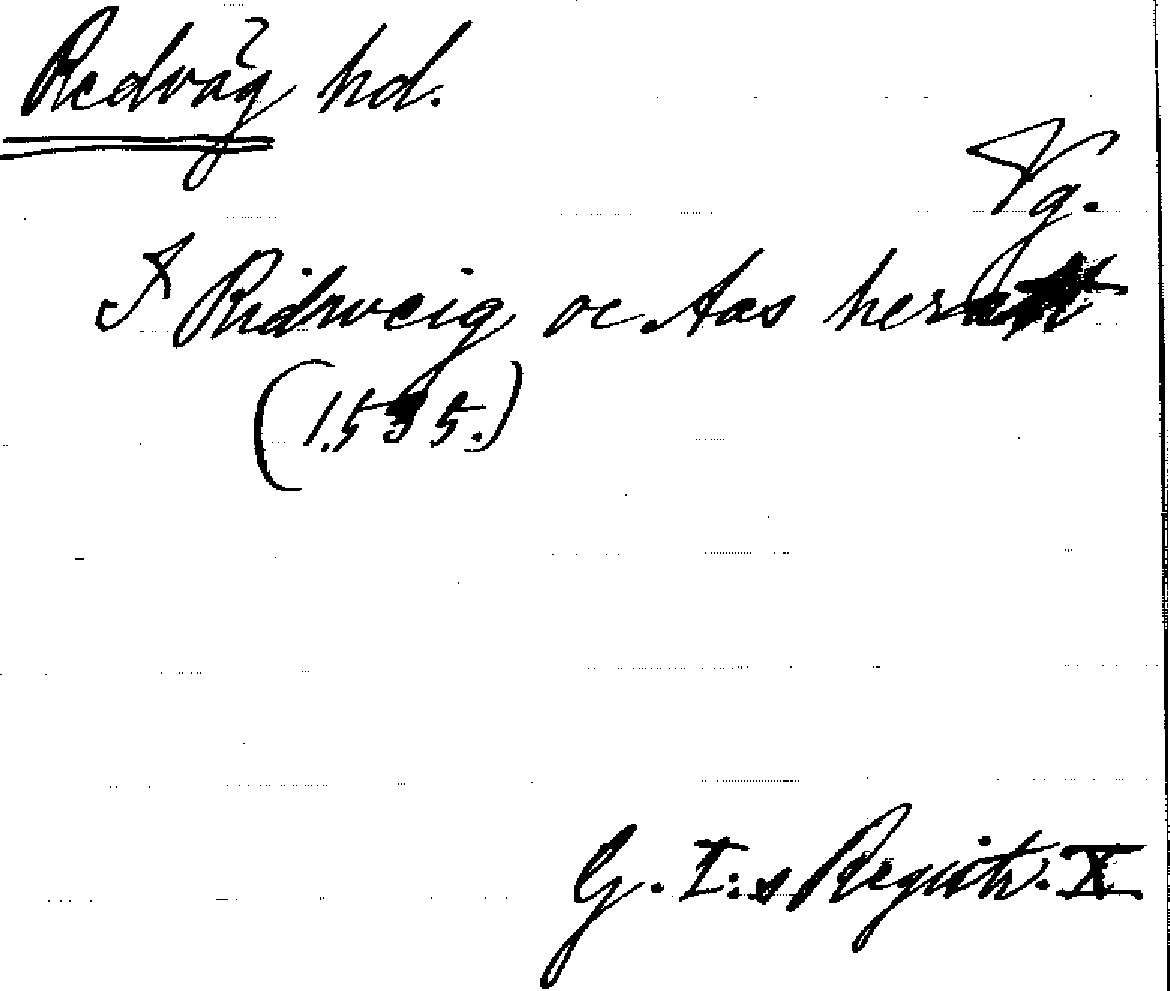 Redväg hd.
Vg.
I Ridweig oc Aas herett
(1535.)
G. I:s Registr. X